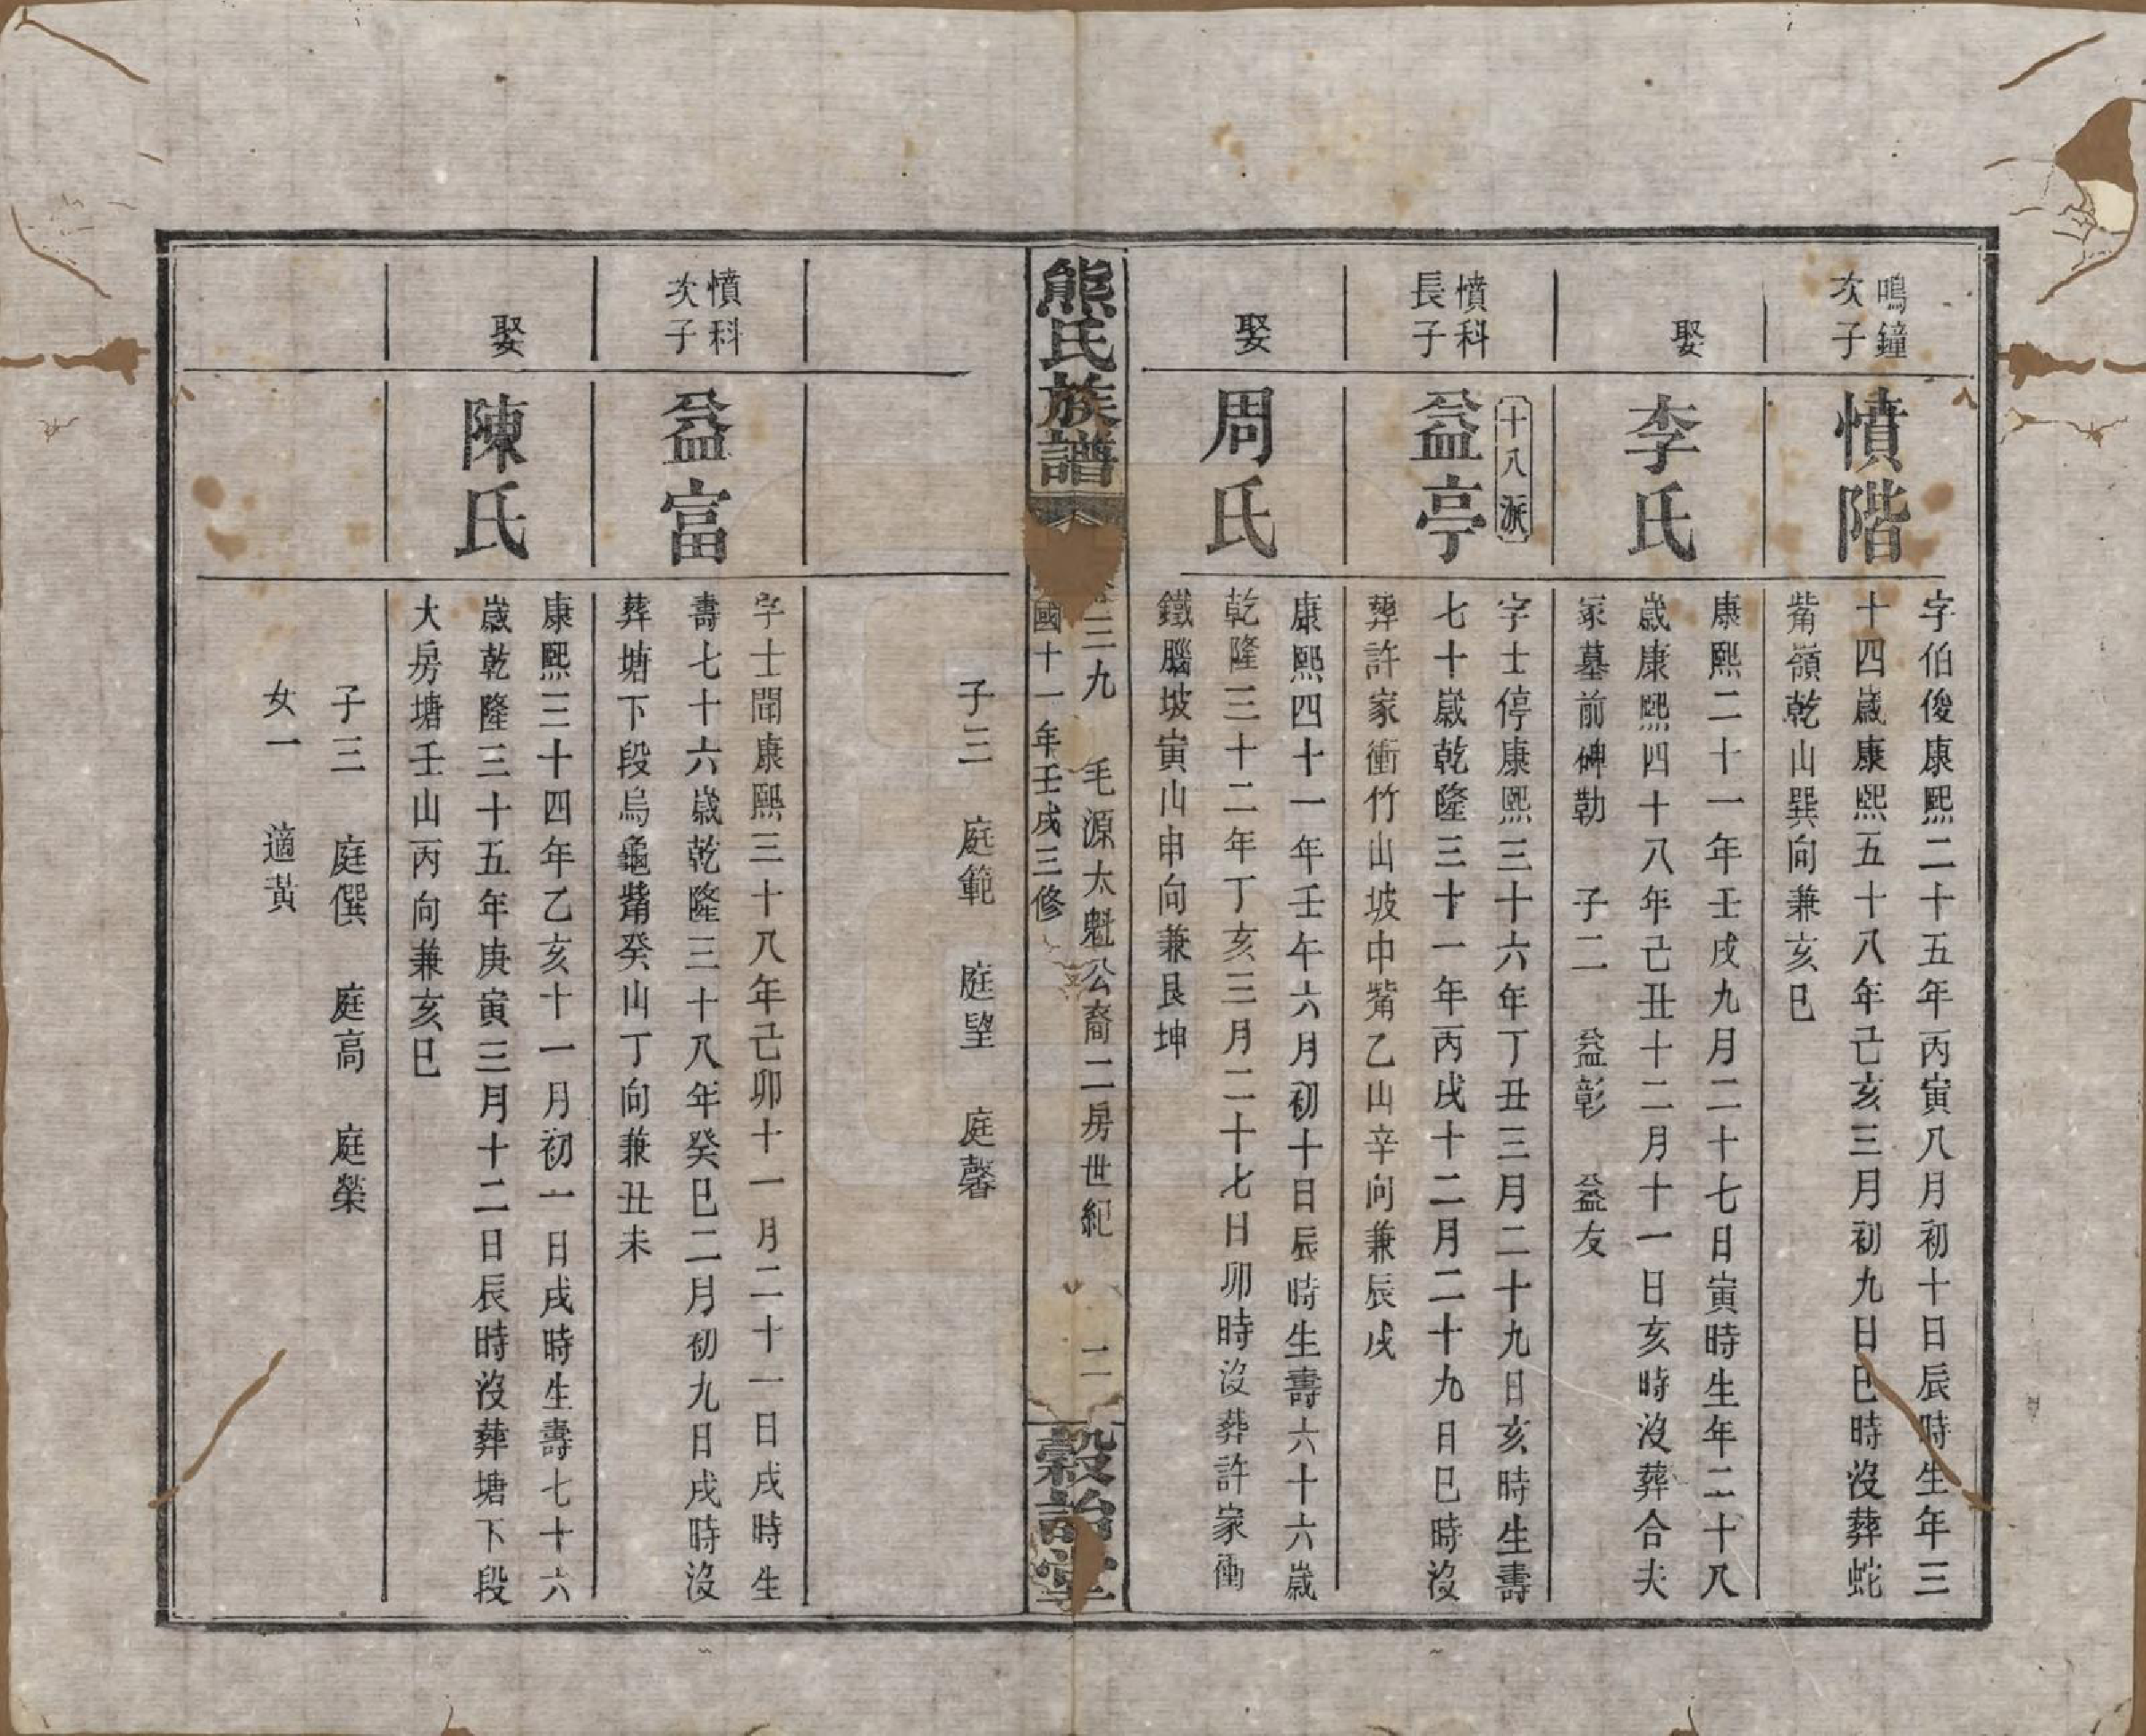 鳴鐘
次子
憤階
字伯俊康熙二十五年丙寅八月初十日辰時生年三
十四歲康熙五十八年己亥三月初九日巳時沒葬蛇
觜嶺乾山巽向兼亥巳
娶
李氏
康熙二十一年壬戌九月二十七日寅時生年二十八
歲康熙四十八年己丑十二月十一日亥時沒葬合夫
冢墓前碑勒 子二 益彰 益友
憤科
長子
十八派
益亭
字士停康熙三十六年丁丑三月二十九日亥時生壽
七十歲乾隆三十一年丙戌十二月二十九日巳時沒
葬許家衝竹山坡中觜乙山辛向兼辰戌
娶
周氏
康熙四十一年壬午六月初十日辰時生壽六十六歲
乾隆三十二年丁亥三月二十七日卯時沒葬許家衝
鐵腦坡寅山申向兼艮坤
熊氏族譜
三九 毛源太魁公裔二房世紀 二
國十一年壬戌三修
穀詒堂
子三 庭範 庭望 庭馨
憤科
次子
益富
字士聞康熙三十八年己卯十一月二十一日戌時生
壽七十六歲乾隆三十八年癸巳二月初九日戌時沒
葬塘下段烏龜觜癸山丁向兼丑未
娶
陳氏
康熙三十四年乙亥十一月初一日戌時生壽七十六
歲乾隆三十五年庚寅三月十二日辰時沒葬塘下段
大房塘壬山丙向兼亥巳
子三 庭僎 庭高 庭榮
女一 適黃